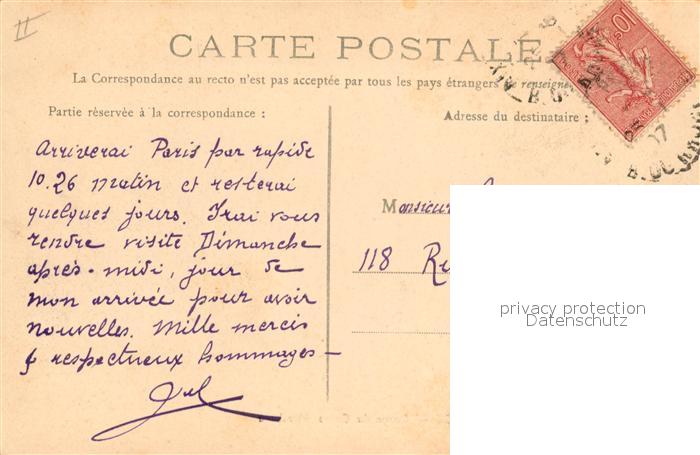 II
CARTE POSTALE
La Correspondance au recto n'est pas acceptée par tous les pays étrangers
Partie réservée à la correspondance :
Adresse du destinataire :
Arriverai Paris par rapide
10.26 matin et resterai
quelques jours. Irai vous
rendre visite Dimanche
après-midi, jour de
mon arrivée pour avoir
nouvelles. Mille mercis
& respectueux hommages —
Monsieur
118 Ru
10
07
privacy protection
Datenschutz